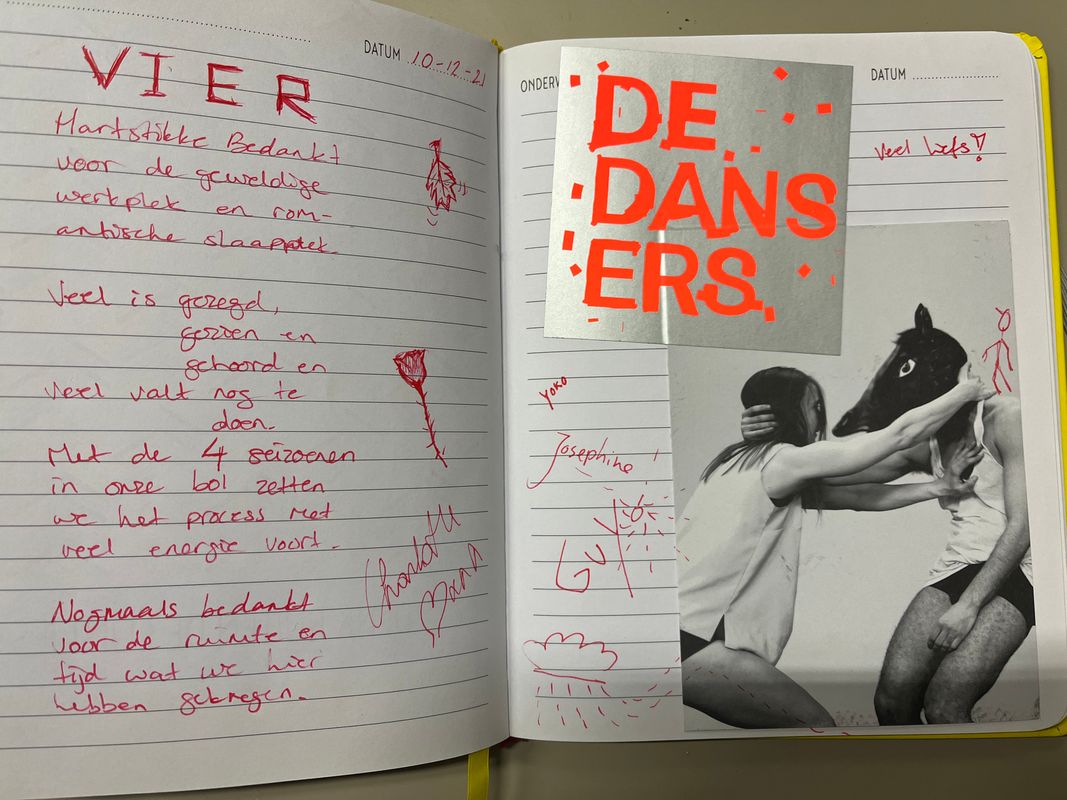 DATUM 10-12-21
VIER
Hartstikke Bedankt
voor de geweldige
werkplek en rom-
antische slaapplek.
Veel is gezegd,
gezien en
gehoord en
veel valt nog te
doen.
Met de 4 seizoenen
in onze bol zetten
we het process met
veel energie voort.
Nogmaals bedankt
voor de ruimte en
tijd wat we hier
hebben gekregen.
Charlotte
ONDERW
DATUM
DE
DANS
ERS.
veel liefs!
YOKO
Josephine